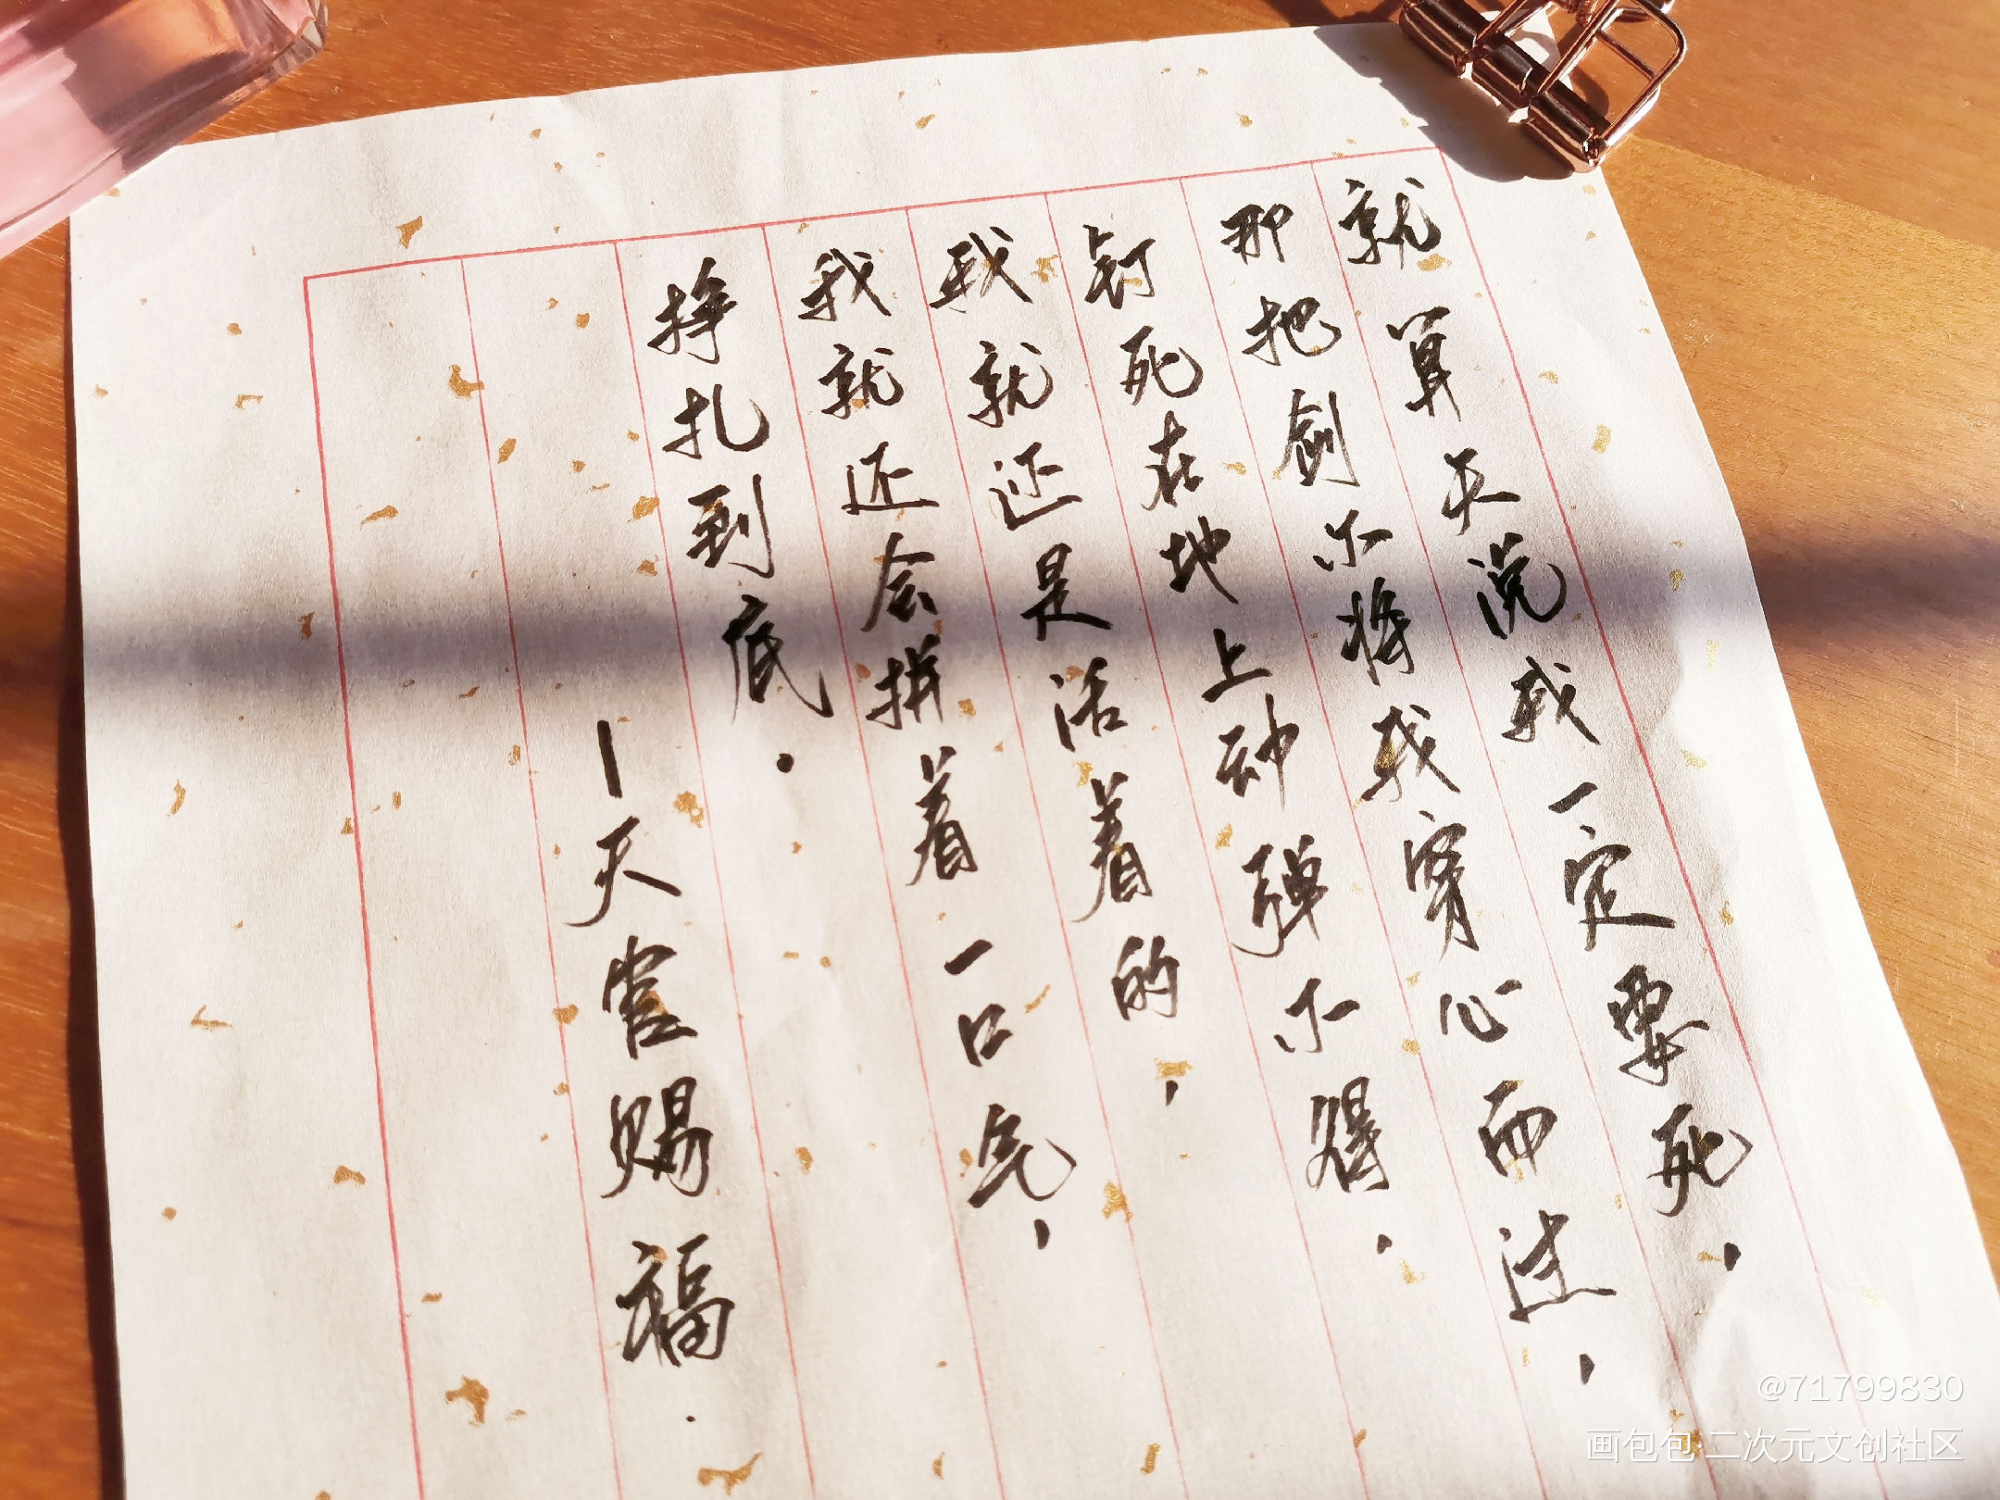 就算天说我一定要死，
那把剑不将我穿心而过，
钉死在地上动弹不得，
我就还是活着的，
我就还会拼着一口气，
挣扎到底.
—天官赐福.
@71799830
画包包·二次元文创社区